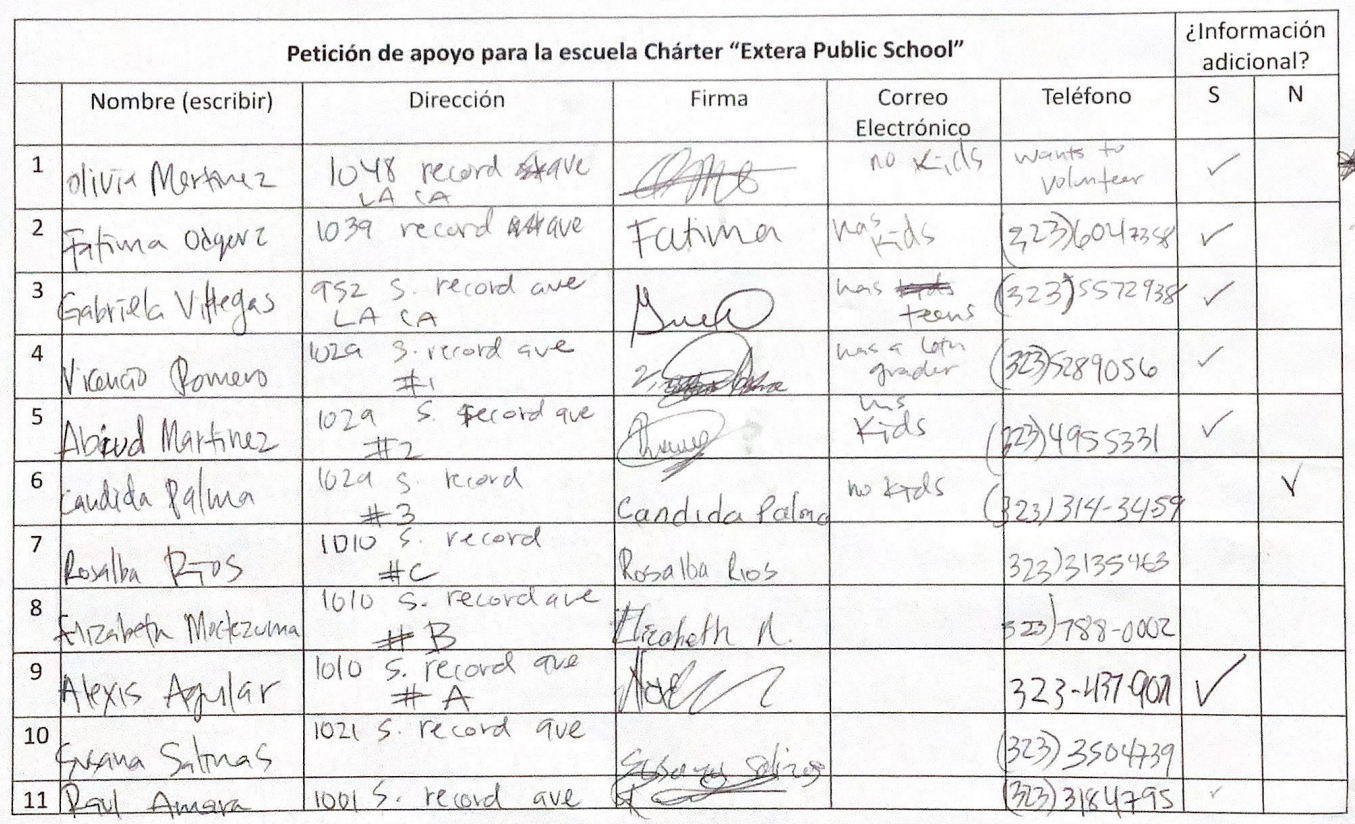 Petición de apoyo para la escuela Chárter “Extera Public School”
¿Información
adicional?
Nombre (escribir) Dirección Firma Correo
Electrónico Teléfono S N
1 olivia Martinez 1048 record ave
LA CA no kids wants to
volunteer ✓
2 Fatima 1039 record ave Fatima has
kids (323)6047358 ✓
3 Gabriela Villegas 952 S. record ave
LA CA has teens (323)5572938 ✓
4 Vicencio Romero 1029 S. record ave
#1 has a 6th
grader (323)5289056 ✓
5 Abiud Martinez 1029 S. record ave
#2 has
kids (323)4955331 ✓
6 Candida Palma 1029 S. record
#3 Candida Palma no kids (323)314-3459 ✓
7 Rosalba Rios 1010 S. record
#C Rosalba Rios 323)3135463
8 Elizabeth Moctezuma 1010 S. record ave
# B Elizabeth M. 323)788-0002
9 Alexis Aguilar 1010 S. record ave
# A 323-437-9071 ✓
10 Susana Salinas 1021 S. record ave Susana Salinas (323)3504739
11 Raul Amara 1001 S. record ave (323)3184795 ✓